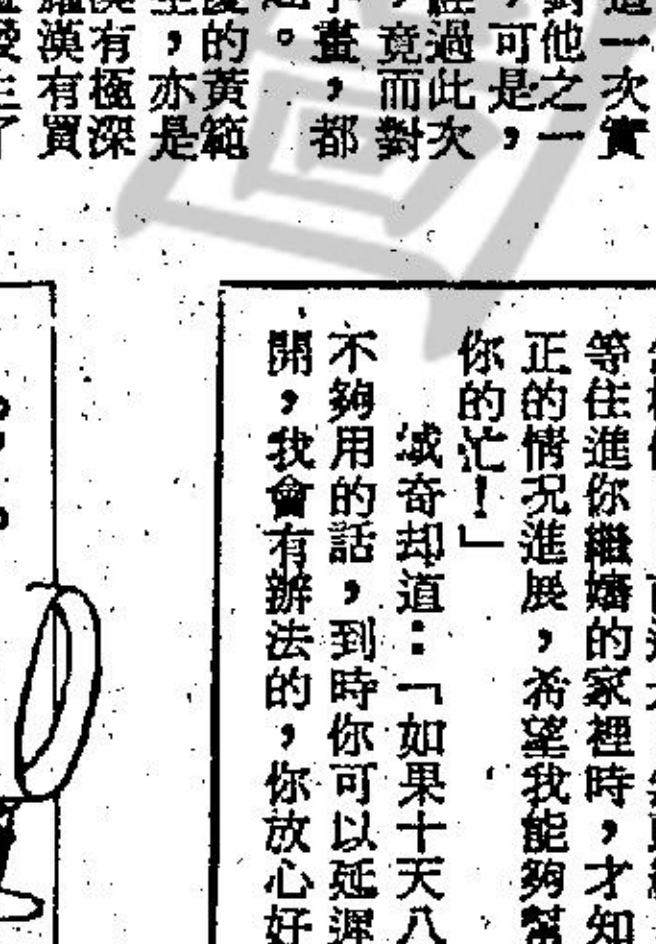 道一次實
對他之一
,可是,
經過此次
,竟而對
字畫,都
。
的黃範
,亦是
漢有極深
羅漢有買
等住進你繼嬸的家裡時,才知
正的情況進展,希望我能夠幫
你的忙!」
域奇却道:「如果十天八
不夠用的話,到時你可以延遲
開,我會有辦法的,你放心好
圖